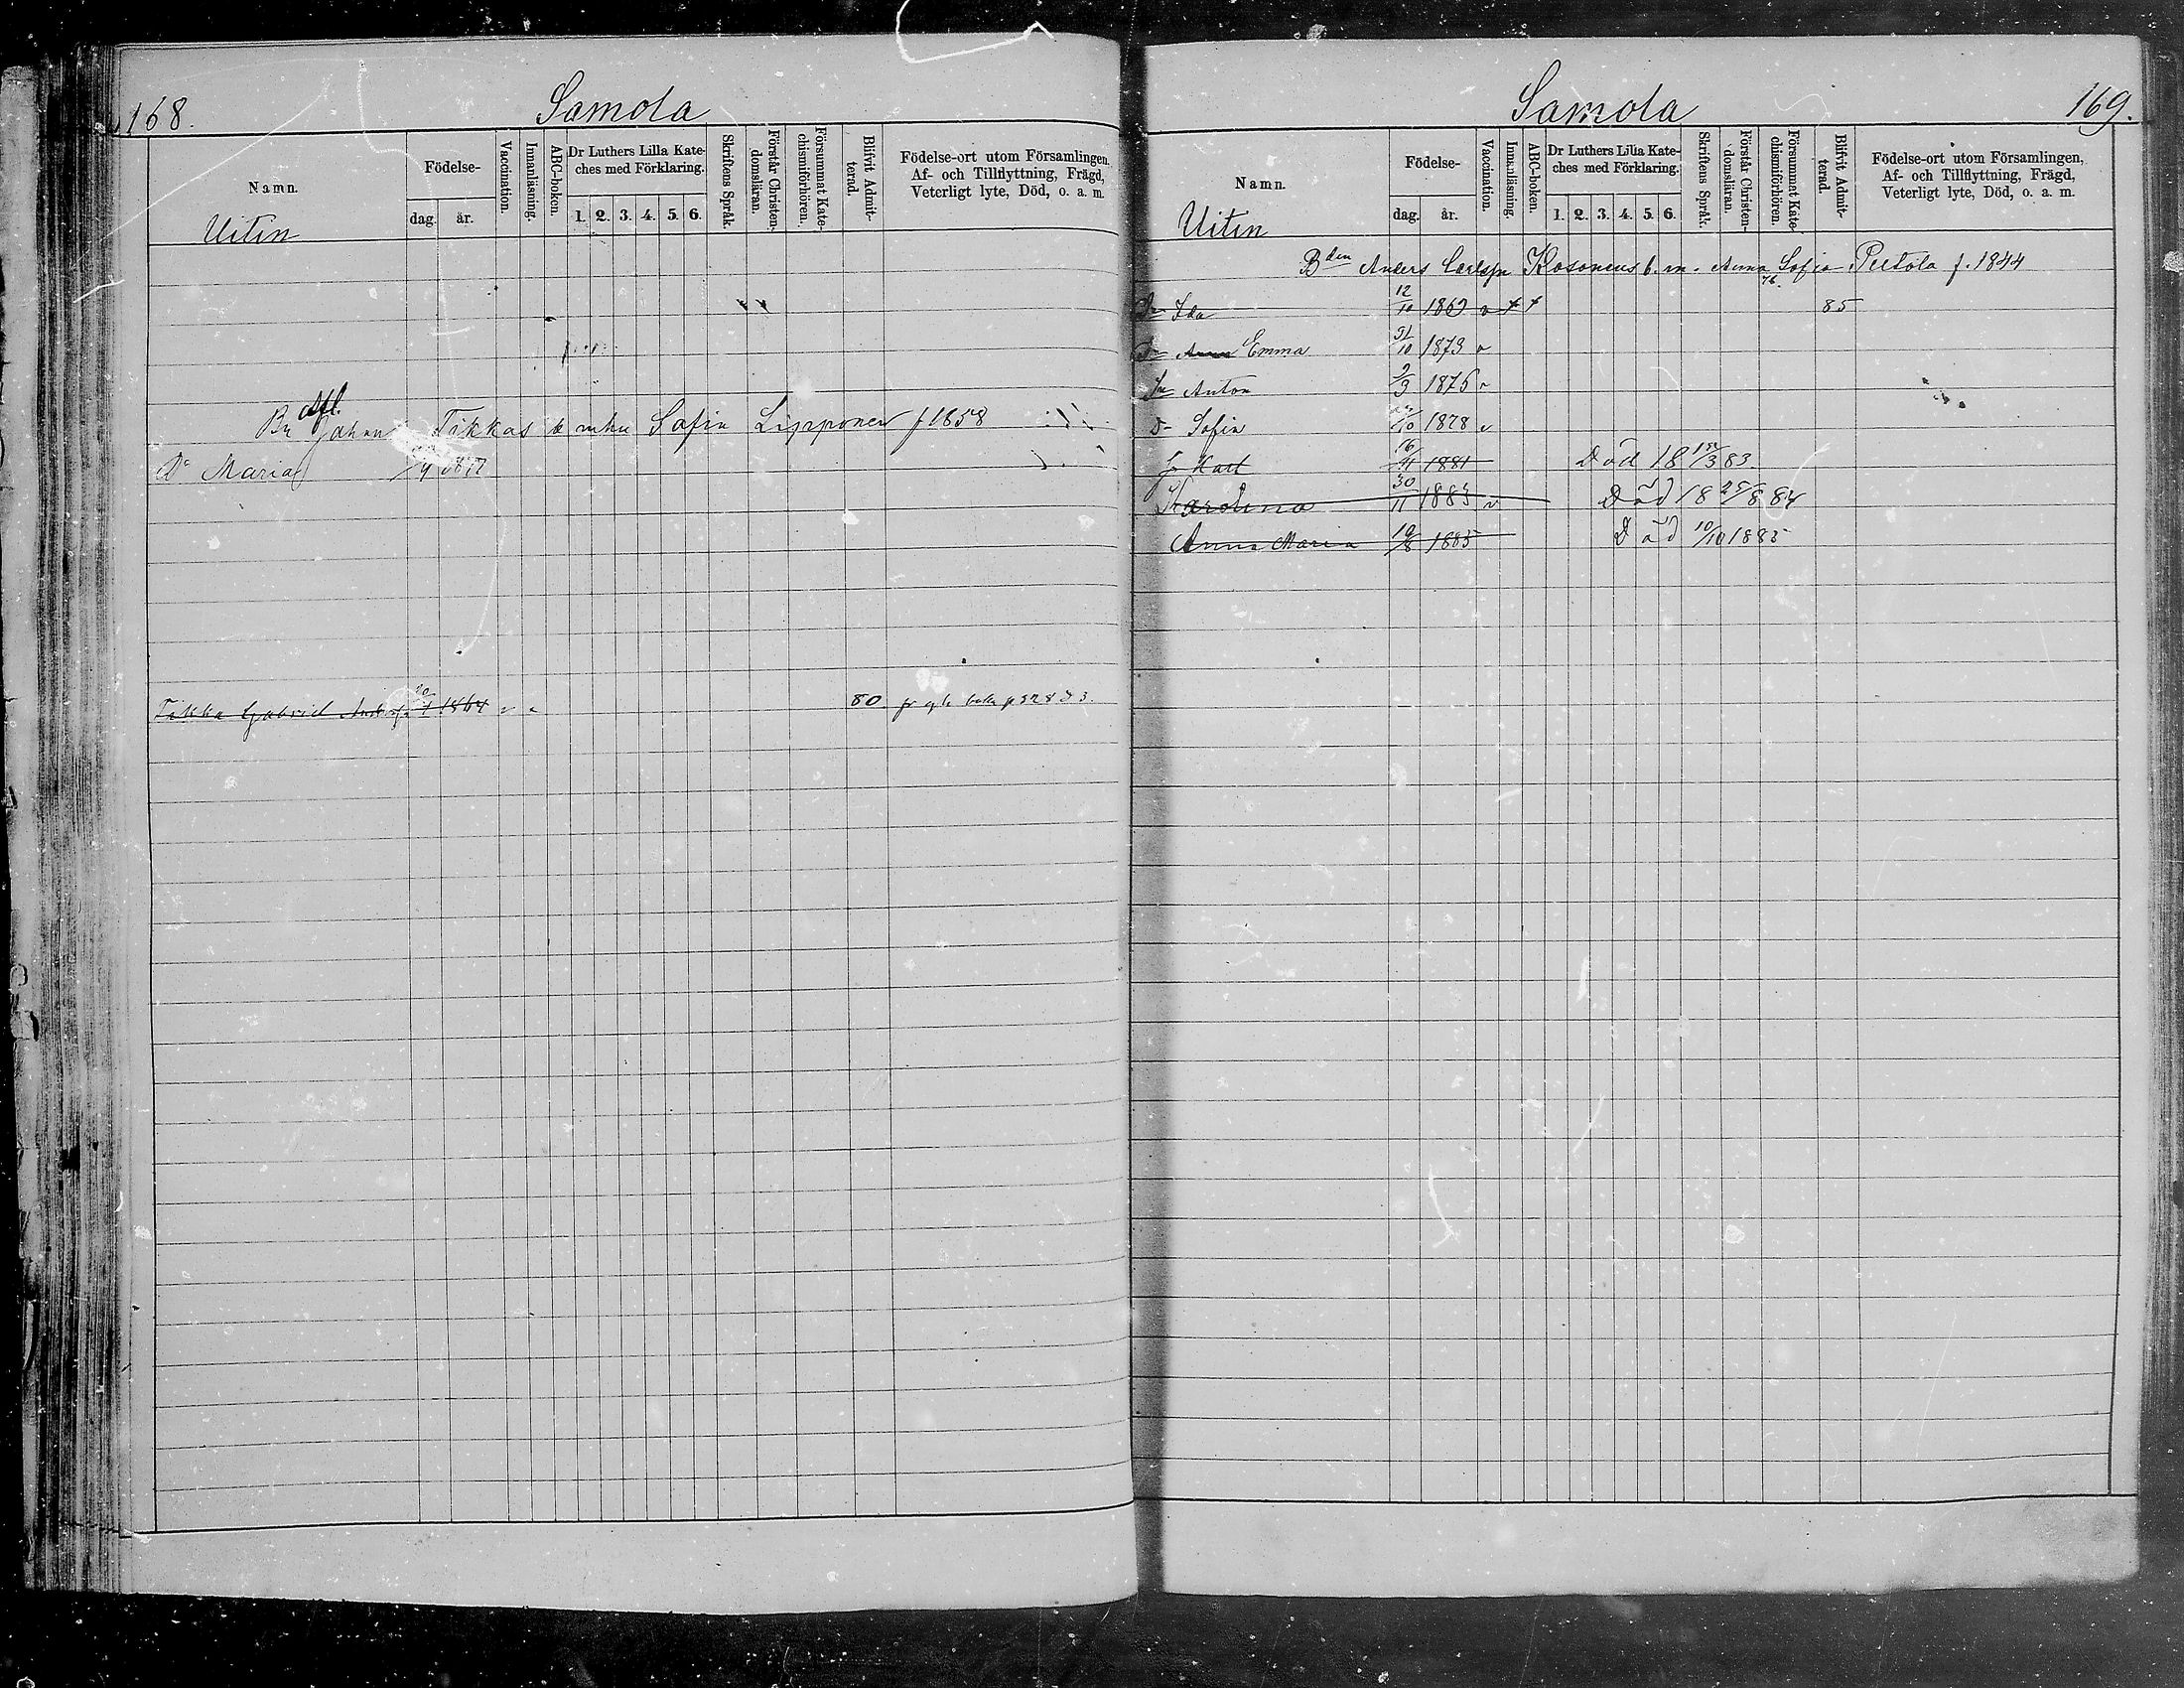 168.
Samola
Namn.
Födelse-
dag.
år.
Vaccination.
Innanläsning.
ABC-boken.
Dr Luthers Lilla Kate-
ches med Förklaring.
1. 2. 3. 4. 5. 6.
Skriftens Språk.
Förstår Christen-
domsläran.
Försummat Kate-
chismiförhören.
Blifvit Admit-
terad.
Födelse-ort utom Församlingen,
Af- och Tillflyttning, Frägd,
Veterligt lyte, Död, o. a. m.
Uitin
Johan Tikkas Sofia Lipponen f 1858
Dr Maria
Tikka Gabriel 1864 v 80
Samola
169.
Namn.
Födelse-
dag.
år.
Vaccination.
Innanläsning.
ABC-boken.
Dr Luthers Lilla Kate-
ches med Förklaring.
1. 2. 3. 4. 5. 6.
Skriftens Språk.
Förstår Christen-
domsläran.
Försummat Kate-
chismiförhören.
Blifvit Admit-
terad.
Födelse-ort utom Församlingen,
Af- och Tillflyttning, Frägd,
Veterligt lyte, Död, o. a. m.
Uitin
Bden Anders Carlsn Kosonens b. m. Anna Sofia Peltola f. 1844
76.
Dr Ida 12/10 v 85
Dr Anna Emma 31/10 1873 v
Sn Anton 2/9 1876 v
D- Sofia 1878 v
Karl 16/11 1881 Död 18 3 83.
Karolina 30/11 1883 v Död 18 25/8 84
Anna Maria 19/8 1885 Död 10/10 1885